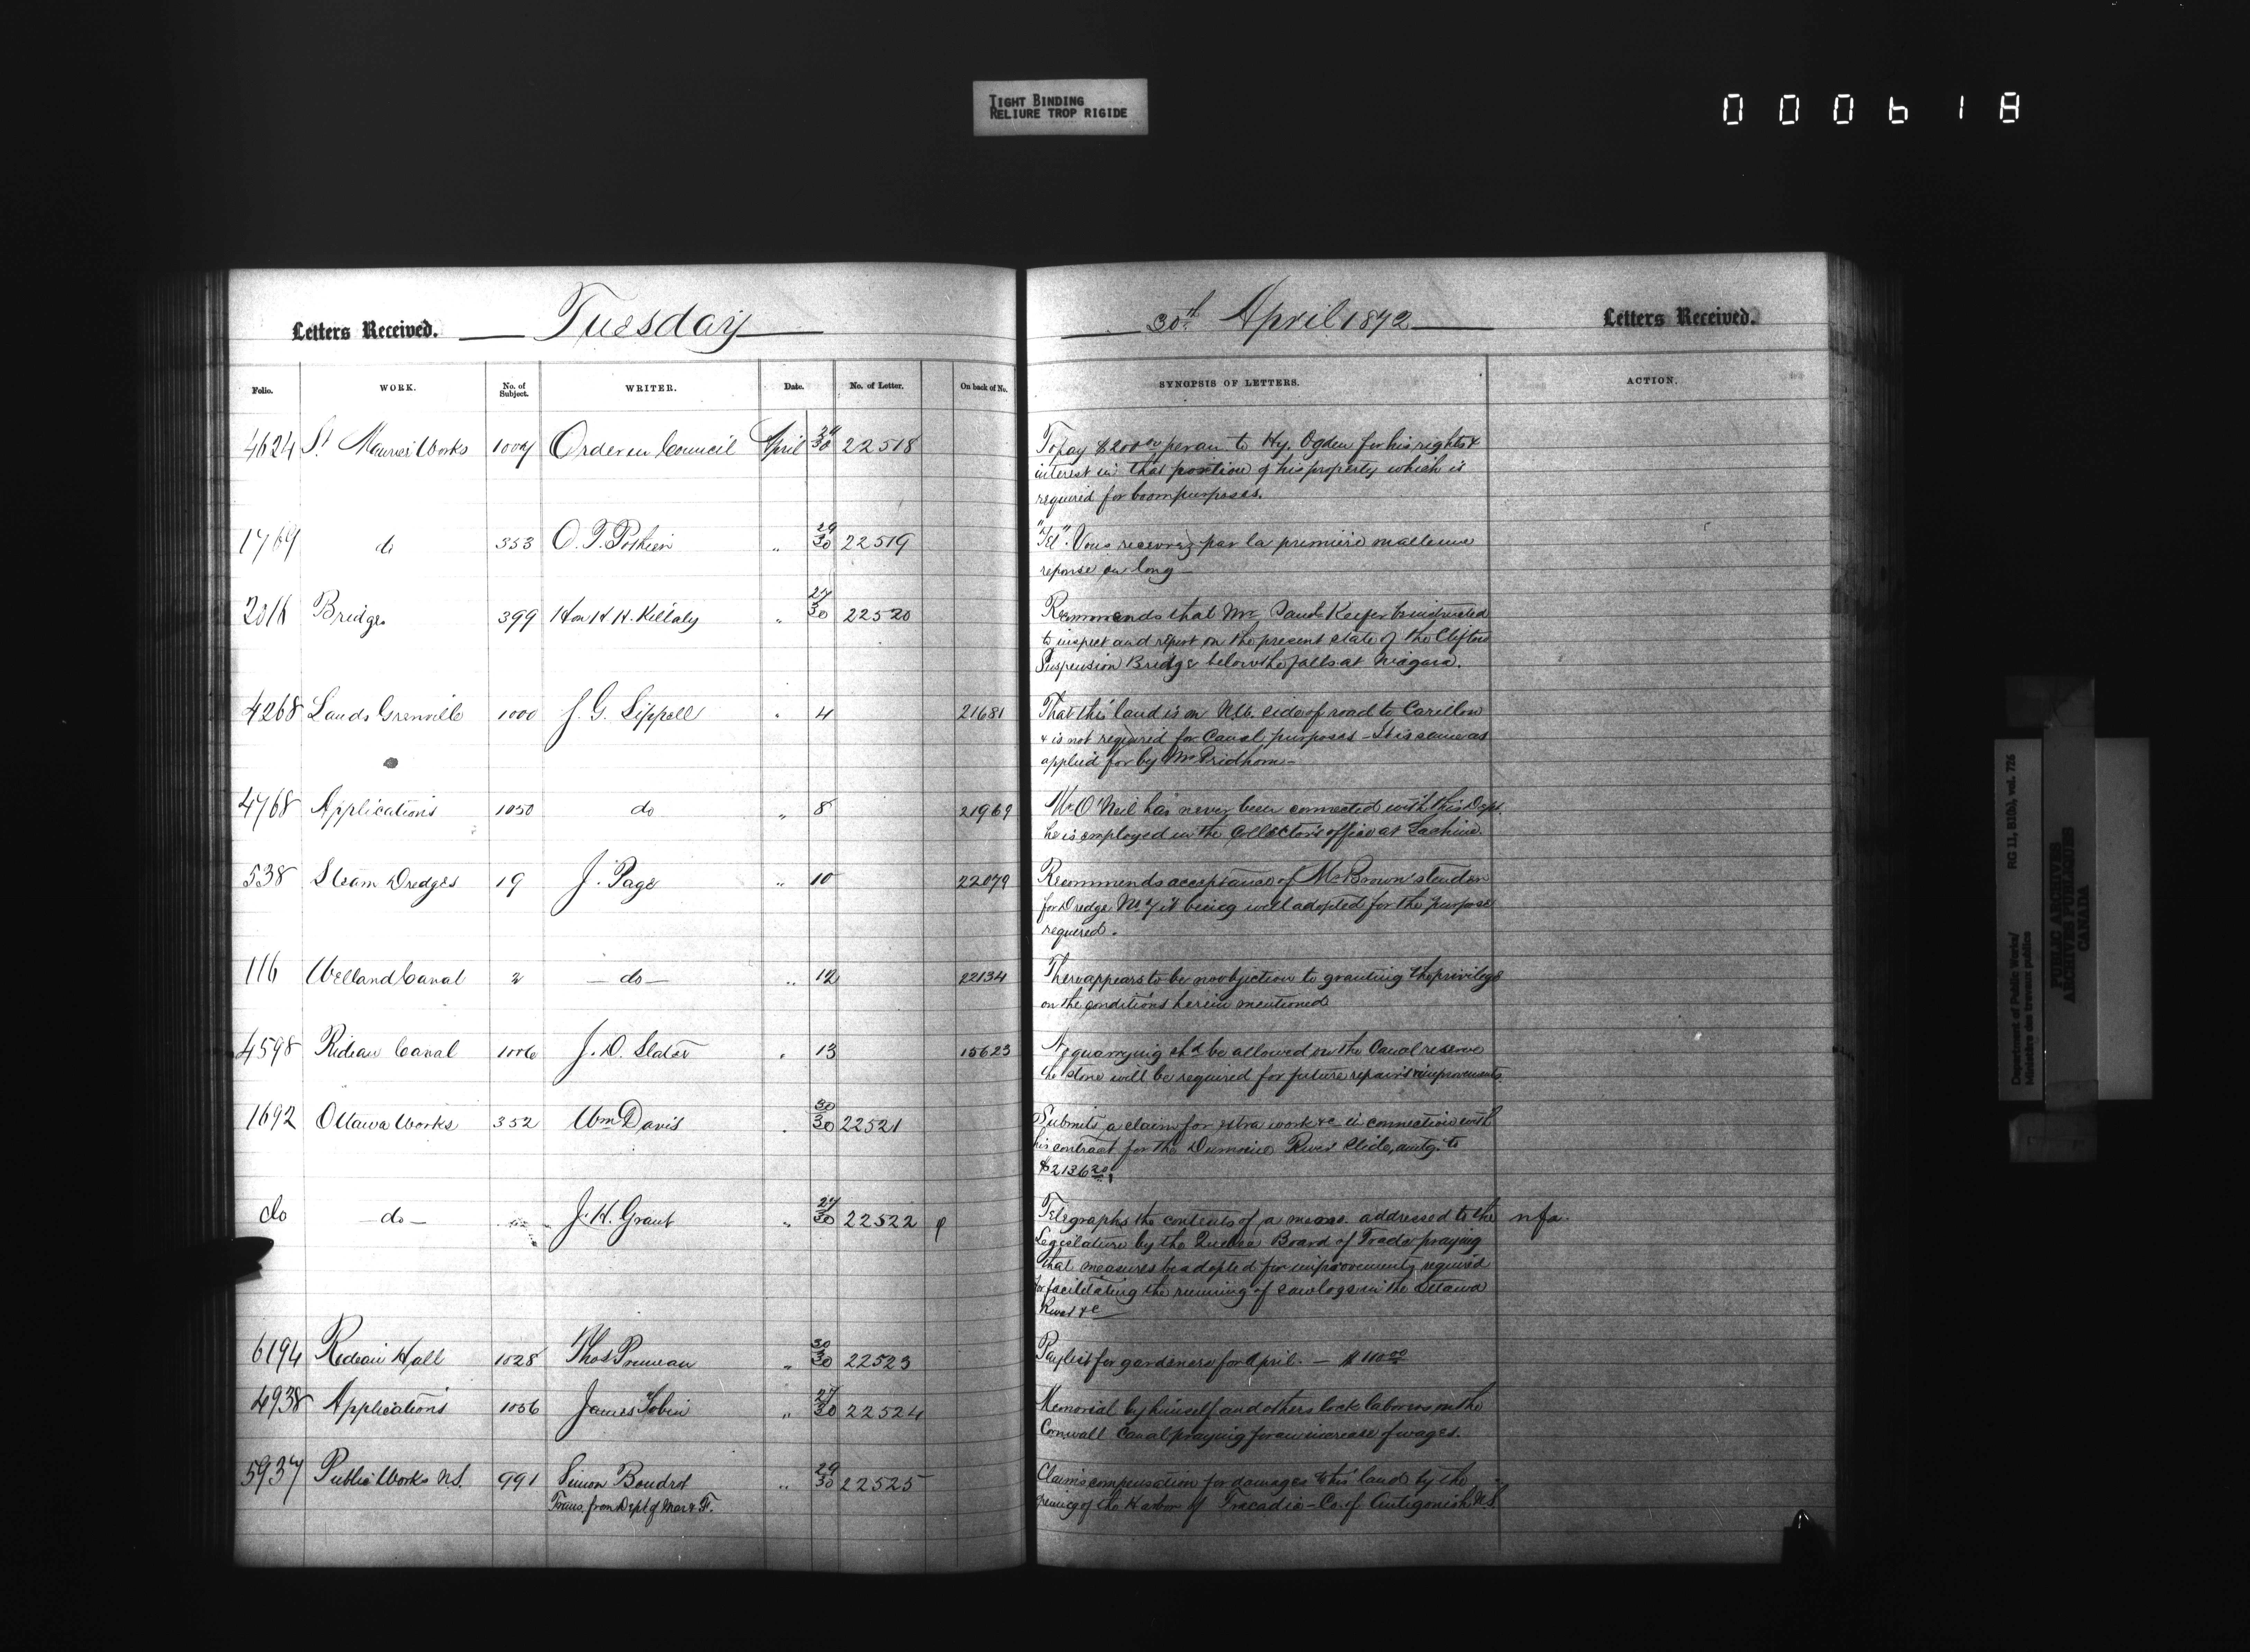 TIGHT BINDING
RELIURE TROP RIGIDE
000618
Letters Received. Tuesday 30th April 1872 Letters Received.
Folio. WORK. No. of Subject. WRITER. Date. No. of Letter. On back of No. SYNOPSIS OF LETTERS. ACTION.
4624 St Maurice Works 1004 Order in Council April 30 22518 To pay $200 00 per an. to Hy. Ogden for his rights &
interest in that portion of his property which is
required for boom purposes.
1769 do 353 " 29/30 22519 "Tel". Vous recevrez par la première malle une
reponse au long —
2016 Bridges 399 Hon H. H. Killaly " 27/30 22520 Recommends that Mr Saml Keefer be instructed
to inspect and report on the present state of the Clifton
Suspension Bridge below the falls at Niagara.
4268 Lands Grenville 1000 J. G. Sippell " 4 21681 That this land is on side of road to Carillon
& is not required for Canal purposes — It is same as
applied for by Mr Pridham —
4768 Applications 1050 do " 8 21969 Mr O'Neil has never been connected with this Dept.
he is employed in the Collector's office at Lachine.
538 Steam Dredges 19 J. Page " 10 22079 Recommends acceptance of Mr Brown's tender
for Dredge No 7 it being well adapted for the purpose
required.
116 Welland Canal 2 — do — " 12 22134 There appears to be no objection to granting the privilege
on the conditions herein mentioned
4598 Rideau Canal 1006 J. D. Slater " 13 15623 No quarrying shd be allowed on the Canal reserve
the stone will be required for future repairs & improvements.
1692 Ottawa Works 352 Wm Davis " 30/30 22521 Submits a claim for extra work &c in connection with
his contract for the Dumoine River Slide, amtg. to
$2136 20
do — do — J. H. Grant " 27/30 22522 Telegraphs the contents of a memo. addressed to the nfa.
Legislature by the Quebec Board of Trade praying
that measures be adopted for improvements required
for facilitating the running of saw logs in the Ottawa
River &c
6194 Rideau Hall 1028 Thos Pruneau " 30/30 22523 Paylist for gardeners for April. — $110 00
4938 Applications 1056 James Tobin " 27/30 22524 Memorial by himself and others lock laborers on the
Cornwall Canal praying for an increase of wages.
5937 Public Works N.S. 991 Simon Boudrot " 29/30 22525 Claims compensation for damages to his land by the
Trans. from Dept of Mar & F. of the Harbor of Tracadie — Co. of Antigonish N.S.
Department of Public Works/ RG 11, B1(b), vol. 726
Ministère des travaux publics
PUBLIC ARCHIVES
ARCHIVES PUBLIQUES
CANADA